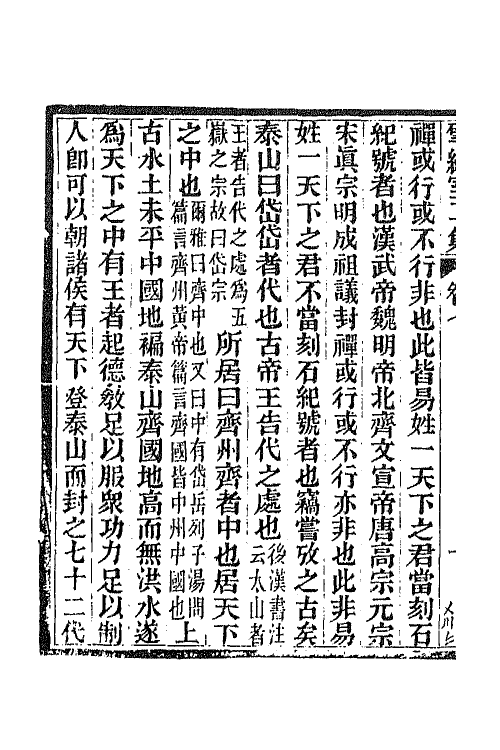 揅經室一集 卷七
禪或行或不行非也此皆易姓一天下之君當刻石
紀號者也漢武帝魏明帝北齊文宣帝唐高宗元宗
宋真宗明成祖議封禪或行或不行亦非也此非易
姓一天下之君不當刻石紀號者也竊嘗攷之古矣
泰山曰岱岱者代也古帝王告代之處也後漢書注云太山者
王者告代之處為五嶽之宗故曰岱宗所居曰齊州齊者中也居天下
之中也爾雅曰齊中也又曰中有岱岳列子湯問篇言齊州黃帝篇言齊國皆中州中國也上
古水土未平中國地褊泰山齊國地高而無洪水遂
為天下之中有王者起德敎足以服衆功力足以制
人卽可以朝諸侯有天下登泰山而封之七十二代